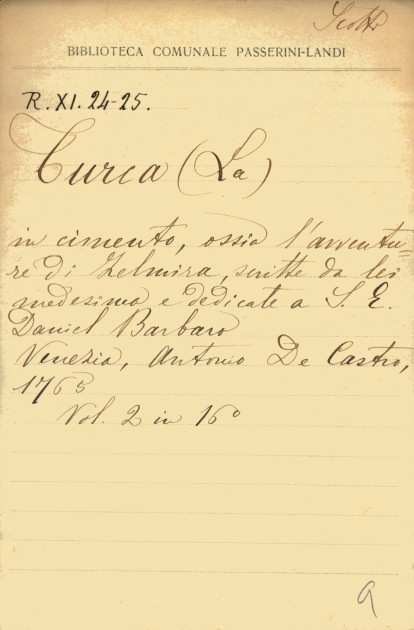 Scotti
BIBLIOTECA COMUNALE PASSERINI-LANDI
R. XI. 24-25.
Turca (La)
in cimento, ossia l'avventu=
re di Zelmira, scritte da lei
medesima e dedicate a S. E.
Daniel Barbaro
Venezia, Antonio De Castro,
1763
Vol. 2 in 16°
a